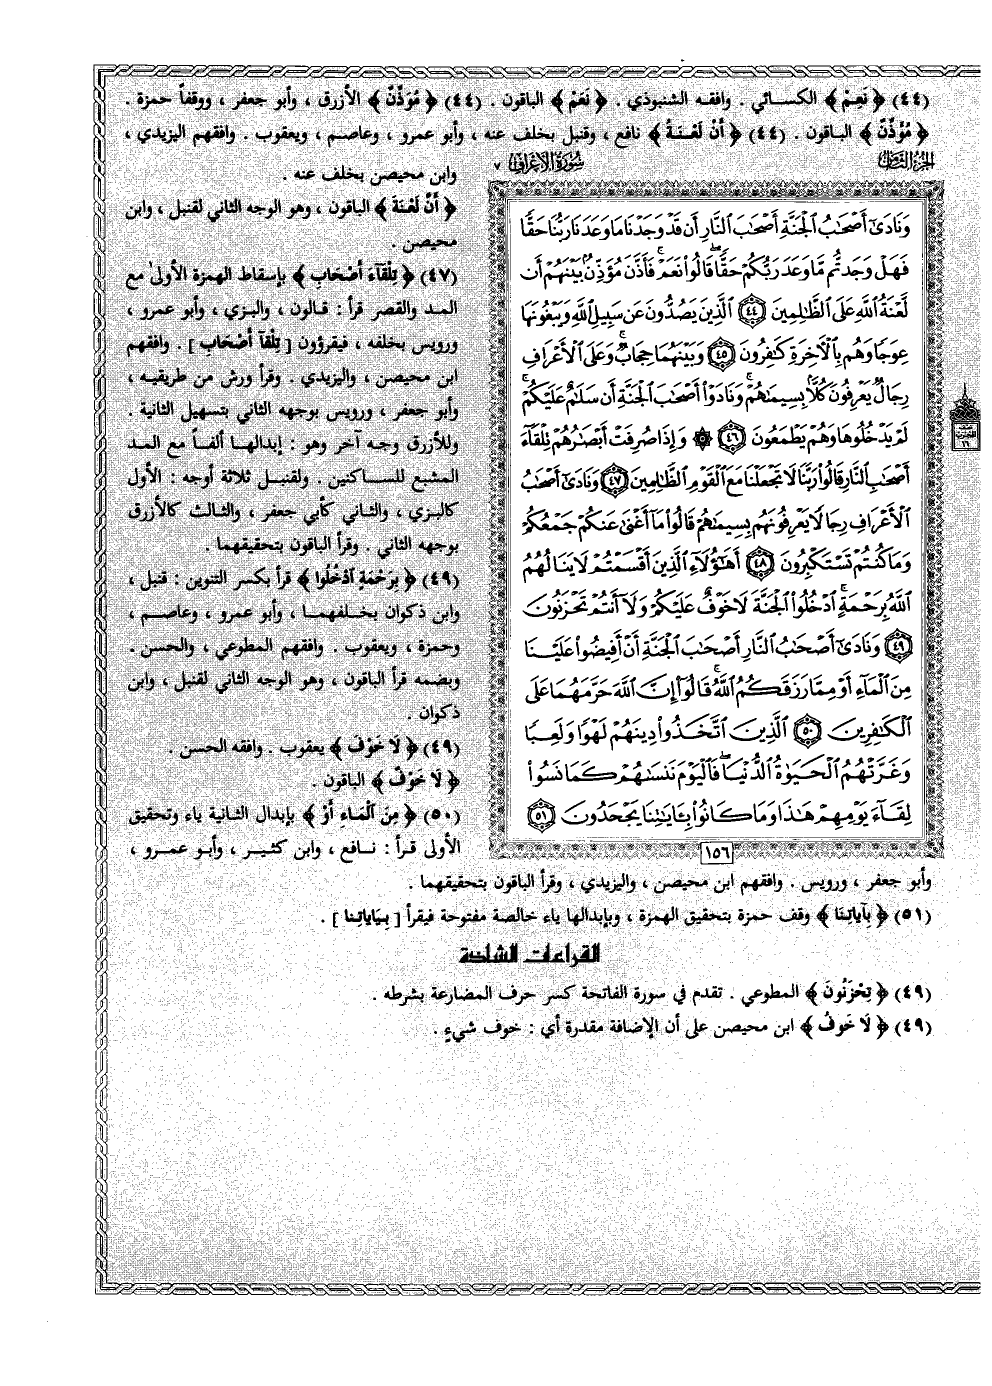 (٤٤) ﴿ نَعِمْ ﴾ الكسائي . وافقه الشنبوذي . ﴿ نَعَمْ ﴾ الباقون . (٤٤) ﴿ مُوَذِّنٌ ﴾ الأزرق ، وأبو جعفر ، ووقفاً حمزة .
﴿ مُؤَذِّنٌ ﴾ الباقون . (٤٤) ﴿ أَنْ لَعْنَةُ ﴾ نافع ، وقنبل بخلف عنه ، وأبو عمرو ، وعاصم ، ويعقوب . وافقهم اليزيدي ،
الجزء الثامن
سورة الأعراف ٧
وابن محيصن بخلف عنه .
﴿ أَنَّ لَعْنَةَ ﴾ الباقون ، وهو الوجه الثاني لقنبل ، وابن
محيصن .
(٤٧) ﴿ تِلْقَآءَ أَصْحَابِ ﴾ بإسقاط الهمزة الأولى مع
المد والقصر قرأ : قالون ، والبزي ، وأبو عمرو ،
ورويس بخلفه ، فيقرؤون [ تِلْقَآ أَصْحَابِ ] . وافقهم
ابن محيصن ، واليزيدي . وقرأ ورش من طريقيه ،
وأبو جعفر ، ورويس بوجهه الثاني بتسهيل الثانية .
وللأزرق وجه آخر وهو : إبدالها ألفاً مع المد
المشبع للساكنين . ولقنبل ثلاثة أوجه : الأول
كالبزي ، والثاني كأبي جعفر ، والثالث كالأزرق
بوجهه الثاني . وقرأ الباقون بتحقيقهما .
(٤٩) ﴿ بِرَحْمَةٍ ادْخُلُوا ﴾ قرأ بكسر التنوين : قنبل ،
وابن ذكوان بخلفهما ، وأبو عمرو ، وعاصم ،
وحمزة ، ويعقوب . وافقهم المطوعي ، والحسن .
وبضمه قرأ الباقون ، وهو الوجه الثاني لقنبل ، وابن
ذكوان .
(٤٩) ﴿ لَا خَوْفَ ﴾ يعقوب . وافقه الحسن .
﴿ لَا خَوْفٌ ﴾ الباقون .
(٥٠) ﴿ مِنَ الْمَاءِ أَوْ ﴾ بإبدال الثانية ياء وتحقيق
الأولى قرأ : نافع ، وابن كثير ، وأبو عمرو ،
وَنَادَىٰٓ أَصْحَٰبُ ٱلْجَنَّةِ أَصْحَٰبَ ٱلنَّارِ أَن قَدْ وَجَدْنَا مَا وَعَدَنَا رَبُّنَا حَقًّا
فَهَلْ وَجَدتُّم مَّا وَعَدَ رَبُّكُمْ حَقًّا ۖ قَالُوا۟ نَعَمْ ۚ فَأَذَّنَ مُؤَذِّنٌۢ بَيْنَهُمْ أَن
لَّعْنَةُ ٱللَّهِ عَلَى ٱلظَّٰلِمِينَ ٤٤ ٱلَّذِينَ يَصُدُّونَ عَن سَبِيلِ ٱللَّهِ وَيَبْغُونَهَا
عِوَجًا وَهُم بِٱلْءَاخِرَةِ كَٰفِرُونَ ٤٥ وَبَيْنَهُمَا حِجَابٌ ۚ وَعَلَى ٱلْأَعْرَافِ
رِجَالٌ يَعْرِفُونَ كُلًّۢا بِسِيمَىٰهُمْ ۚ وَنَادَوْا۟ أَصْحَٰبَ ٱلْجَنَّةِ أَن سَلَٰمٌ عَلَيْكُمْ ۚ
لَمْ يَدْخُلُوهَا وَهُمْ يَطْمَعُونَ ٤٦ ۞ وَإِذَا صُرِفَتْ أَبْصَٰرُهُمْ تِلْقَآءَ
أَصْحَٰبِ ٱلنَّارِ قَالُوا۟ رَبَّنَا لَا تَجْعَلْنَا مَعَ ٱلْقَوْمِ ٱلظَّٰلِمِينَ ٤٧ وَنَادَىٰٓ أَصْحَٰبُ
ٱلْأَعْرَافِ رِجَالًا يَعْرِفُونَهُم بِسِيمَىٰهُمْ قَالُوا۟ مَآ أَغْنَىٰ عَنكُمْ جَمْعُكُمْ
وَمَا كُنتُمْ تَسْتَكْبِرُونَ ٤٨ أَهَٰٓؤُلَآءِ ٱلَّذِينَ أَقْسَمْتُمْ لَا يَنَالُهُمُ
ٱللَّهُ بِرَحْمَةٍ ۚ ٱدْخُلُوا۟ ٱلْجَنَّةَ لَا خَوْفٌ عَلَيْكُمْ وَلَآ أَنتُمْ تَحْزَنُونَ
٤٩ وَنَادَىٰٓ أَصْحَٰبُ ٱلنَّارِ أَصْحَٰبَ ٱلْجَنَّةِ أَنْ أَفِيضُوا۟ عَلَيْنَا
مِنَ ٱلْمَآءِ أَوْ مِمَّا رَزَقَكُمُ ٱللَّهُ ۚ قَالُوٓا۟ إِنَّ ٱللَّهَ حَرَّمَهُمَا عَلَى
ٱلْكَٰفِرِينَ ٥٠ ٱلَّذِينَ ٱتَّخَذُوا۟ دِينَهُمْ لَهْوًا وَلَعِبًا
وَغَرَّتْهُمُ ٱلْحَيَوٰةُ ٱلدُّنْيَا ۚ فَٱلْيَوْمَ نَنسَىٰهُمْ كَمَا نَسُوا۟
لِقَآءَ يَوْمِهِمْ هَٰذَا وَمَا كَانُوا۟ بِـَٔايَٰتِنَا يَجْحَدُونَ ٥١
١٥٦
وأبو جعفر ، ورويس . وافقهم ابن محيصن ، واليزيدي ، وقرأ الباقون بتحقيقهما .
(٥١) ﴿ بِآيَاتِنَا ﴾ وقف حمزة بتحقيق الهمزة ، وبإبدالها ياء خالصة مفتوحة فيقرأ [ بِيَايَاتِنا ] .
القراءات الشاذة
(٤٩) ﴿ تِحْزَنُونَ ﴾ المطوعي . تقدم في سورة الفاتحة كسر حرف المضارعة بشرطه .
(٤٩) ﴿ لَا خَوْفُ ﴾ ابن محيصن على أن الإضافة مقدرة أي : خوف شيءٍ .